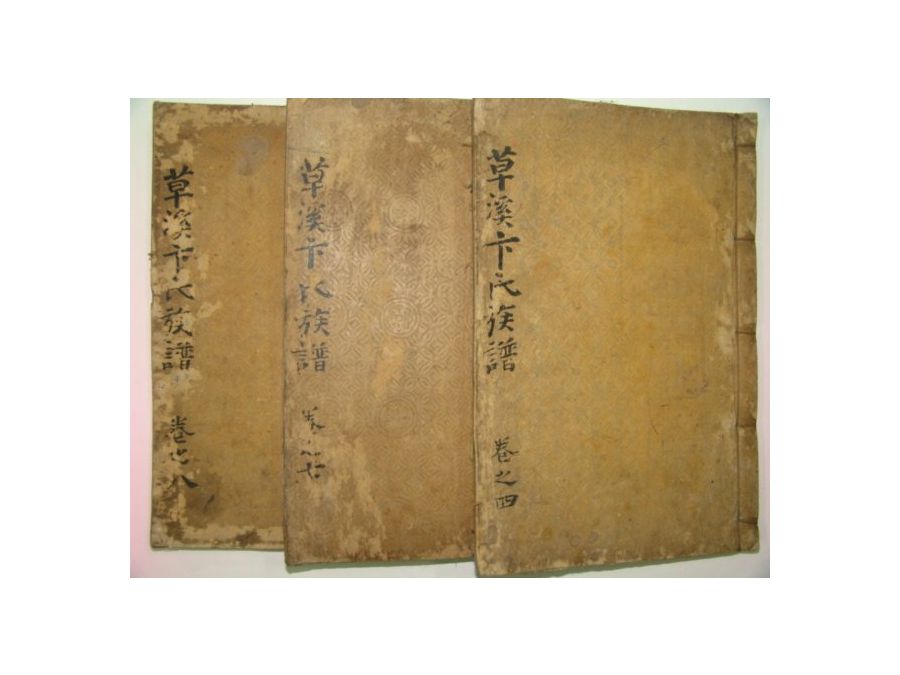 草溪卞氏族譜 卷之四
草溪卞氏族譜 卷之七
草溪卞氏族譜 卷之八